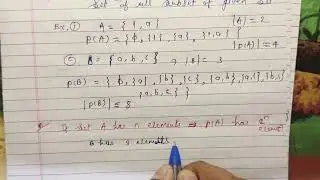 Set of all subset of given set
Ex. ① A = { 1, a } |A| = 2
P(A) = { ϕ, {1}, {a}, {1, a} }
|P(A)| = 4
② B = { a, b, c } ⇒ |B| = 3
P(B) = { ϕ, {a}, {b}, {c}, {a, b}, {b, c}
{a, b, c} }
|P(B)| = 8
If set A has n elements ⇒ P(A) has 2ⁿ
element
B has 3 elements